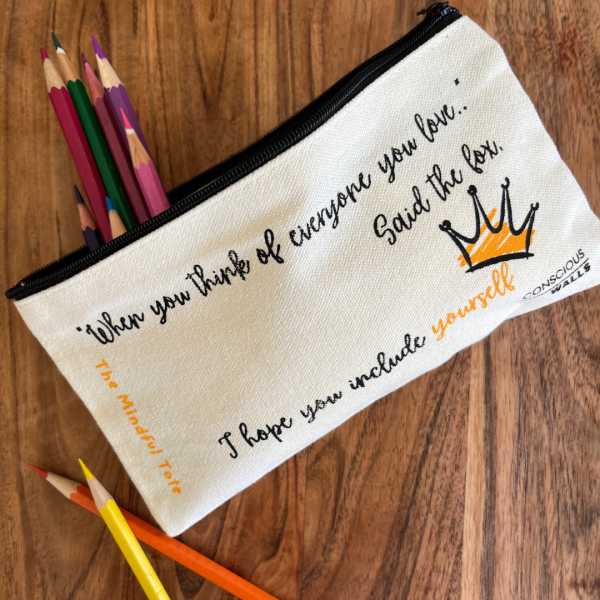 "When you think of everyone you love.."
Said the fox.
I hope you include yourself
CONSCIOUS
WALLS
The Mindful Tote